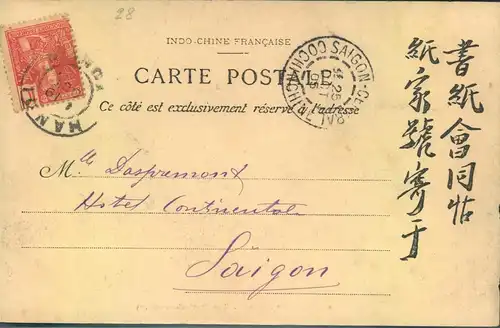 28
INDO-CHINE FRANÇAISE
CARTE POSTALE
Ce côté est exclusivement réservé à l'adresse
SAIGON-CENTRAL
COCHINCHINE
25
05
HANOI
Mlle Daspremont
Hotel Continental
Saïgon
書紙會同帖
紙家號寄于